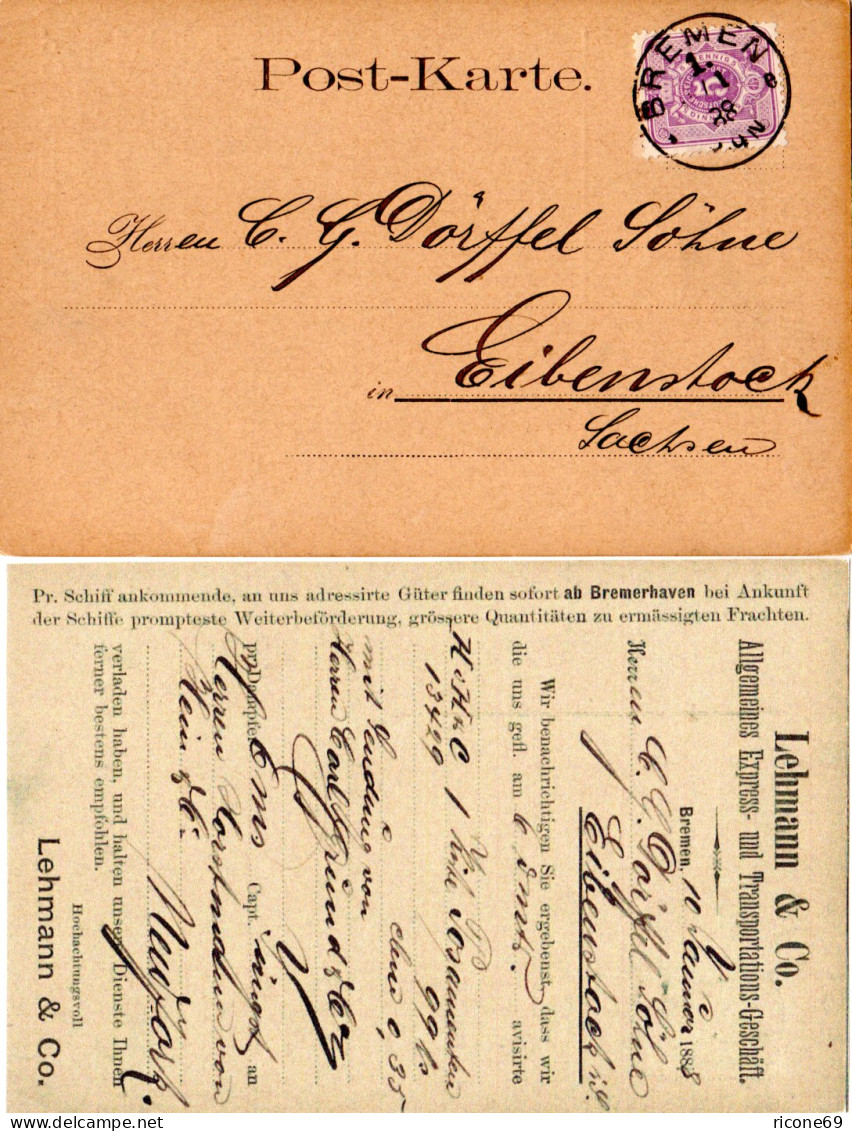 Post-Karte.
BREMEN
1
88
5
Herren C. G. Dörffel Söhne
in Eibenstock
Sachsen
Pr. Schiff ankommende, an uns adressirte Güter finden sofort ab Bremerhaven bei Ankunft
der Schiffe prompteste Weiterbeförderung, grössere Quantitäten zu ermässigten Frachten.
Lehmann & Co.
Allgemeines Express- und Transportations-Geschäft.
Bremen, 10 Januar 1888
Herren C. G. Dörffel Söhne
Eibenstock
Wir benachrichtigen Sie ergebenst, dass wir
die uns gefl. am 6 dmts. avisirte
13429 1 Kiste Posamenten
99
mit Sendung von
Herren Carl Gründ
pr. Dampfer Ems Capt. an
Herren Horstmann von
Hein & Co
New York
verladen haben, und halten unsere Dienste Ihnen
ferner bestens empfohlen.
Hochachtungsvoll
Lehmann & Co.
ricone69